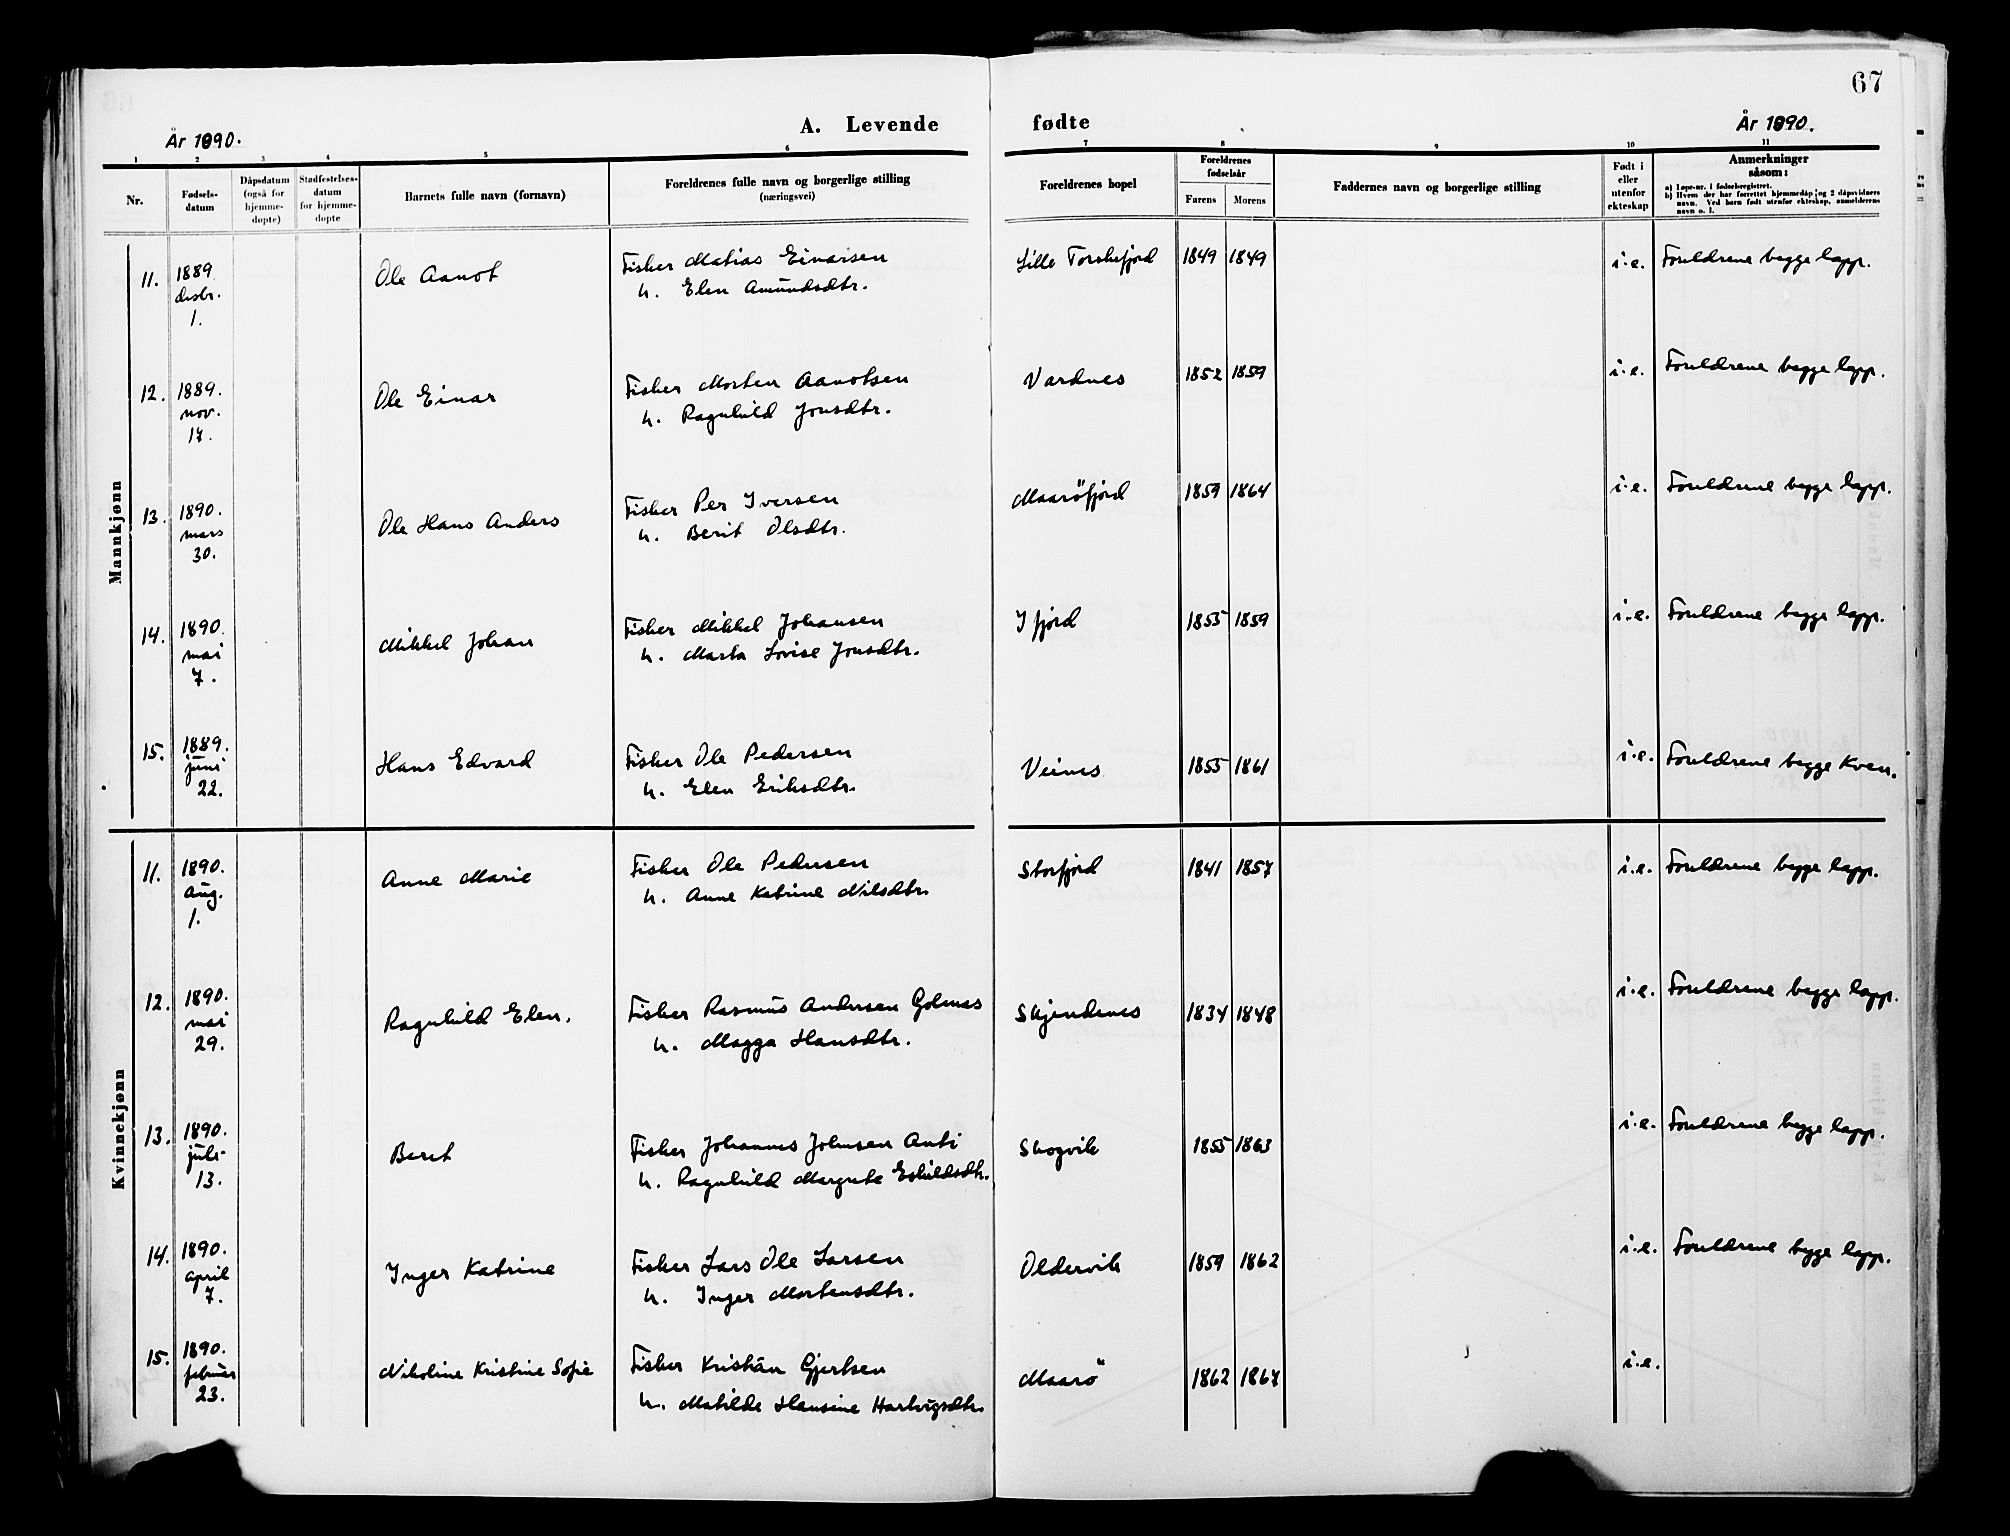 67
År 1890.
A. Levende fødte
År 1890.
1 2 3 4 5 6 7 8 9 10 11
Nr.
Fødsels-
datum
Dåpsdatum
(også for
hjemme-
døpte)
Stadfestelses-
datum
for hjemme-
døpte
Barnets fulle navn (fornavn)
Foreldrenes fulle navn og borgerlige stilling
(næringsvei)
Foreldrenes bopel
Foreldrenes
fødselsår
Farens Morens
Faddernes navn og borgerlige stilling
Født i
eller
utenfor
ekteskap
Anmerkninger
såsom:
a) Løpe-nr. i fødselsregistret.
b) Hvem der har forrettet hjemmedåp og 2 dåpsvidners
navn. Ved barn født utenfor ekteskap, anmelderens
navn o. l.
Mannkjønn
11. 1889 desbr. 1. Ole Aanot Fisker Matias Einarsen Lille Torskefjord 1849 1849 i.e. Foreldrene begge lapp.
h. Elen Amundsdtr.
12. 1889. nov. 17. Ole Einar Fisker Morten Aanotsen Vardnes 1852 1859 i.e. Foreldrene begge lapp.
h. Ragnhild Jonsdtr.
13. 1890. mars 30. Ole Hans Anders Fisker Per Iversen Maaröfjord 1859 1864 i.e. Foreldrene begge lapp.
h. Berit Olsdtr.
14. 1890. mai 7. Mikkel Johan Fisker Mikkel Johansen Ifjord 1855 1859 i.e. Foreldrene begge lapp.
h. Marta Lovise Jonsdtr.
15. 1889. juni 22. Hans Edvard Fisker Ole Pedersen Veines 1855 1861 i.e. Foreldrene begge Kven.
h. Elen Eriksdtr.
Kvinnekjønn
11. 1890. Aug. 1. Anne Marie Fisker Ole Pedersen Storfjord 1841 1857 i.e. Foreldrene begge lapp.
h. Anne Katrine Nilsdtr.
12. 1890. mai 29. Ragnhild Elen. Fisker Rasmus Andersen Golmas Skjendenes 1834 1848 i.e. Foreldrene begge lapp.
h. Magga Hansdtr.
13. 1890. juli 13. Beret Fisker Johannes Johnsen Anti Skogvik 1855 1863 i.e. Foreldrene begge lapp.
h. Ragnhild Margrete Eskildsdtr.
14. 1890. april 7. Inger Katrine Fisker Lars Ole Larsen Oldervik 1859 1862 i.e. Foreldrene begge lapp.
h. Inger Mortensdtr.
15. 1890. februar 23. Nikoline Kristine Sofie Fisker Kristian Gjertsen Maarö 1862 1867 i.e.
h. Matilde Hansine Hartvigsdtr.